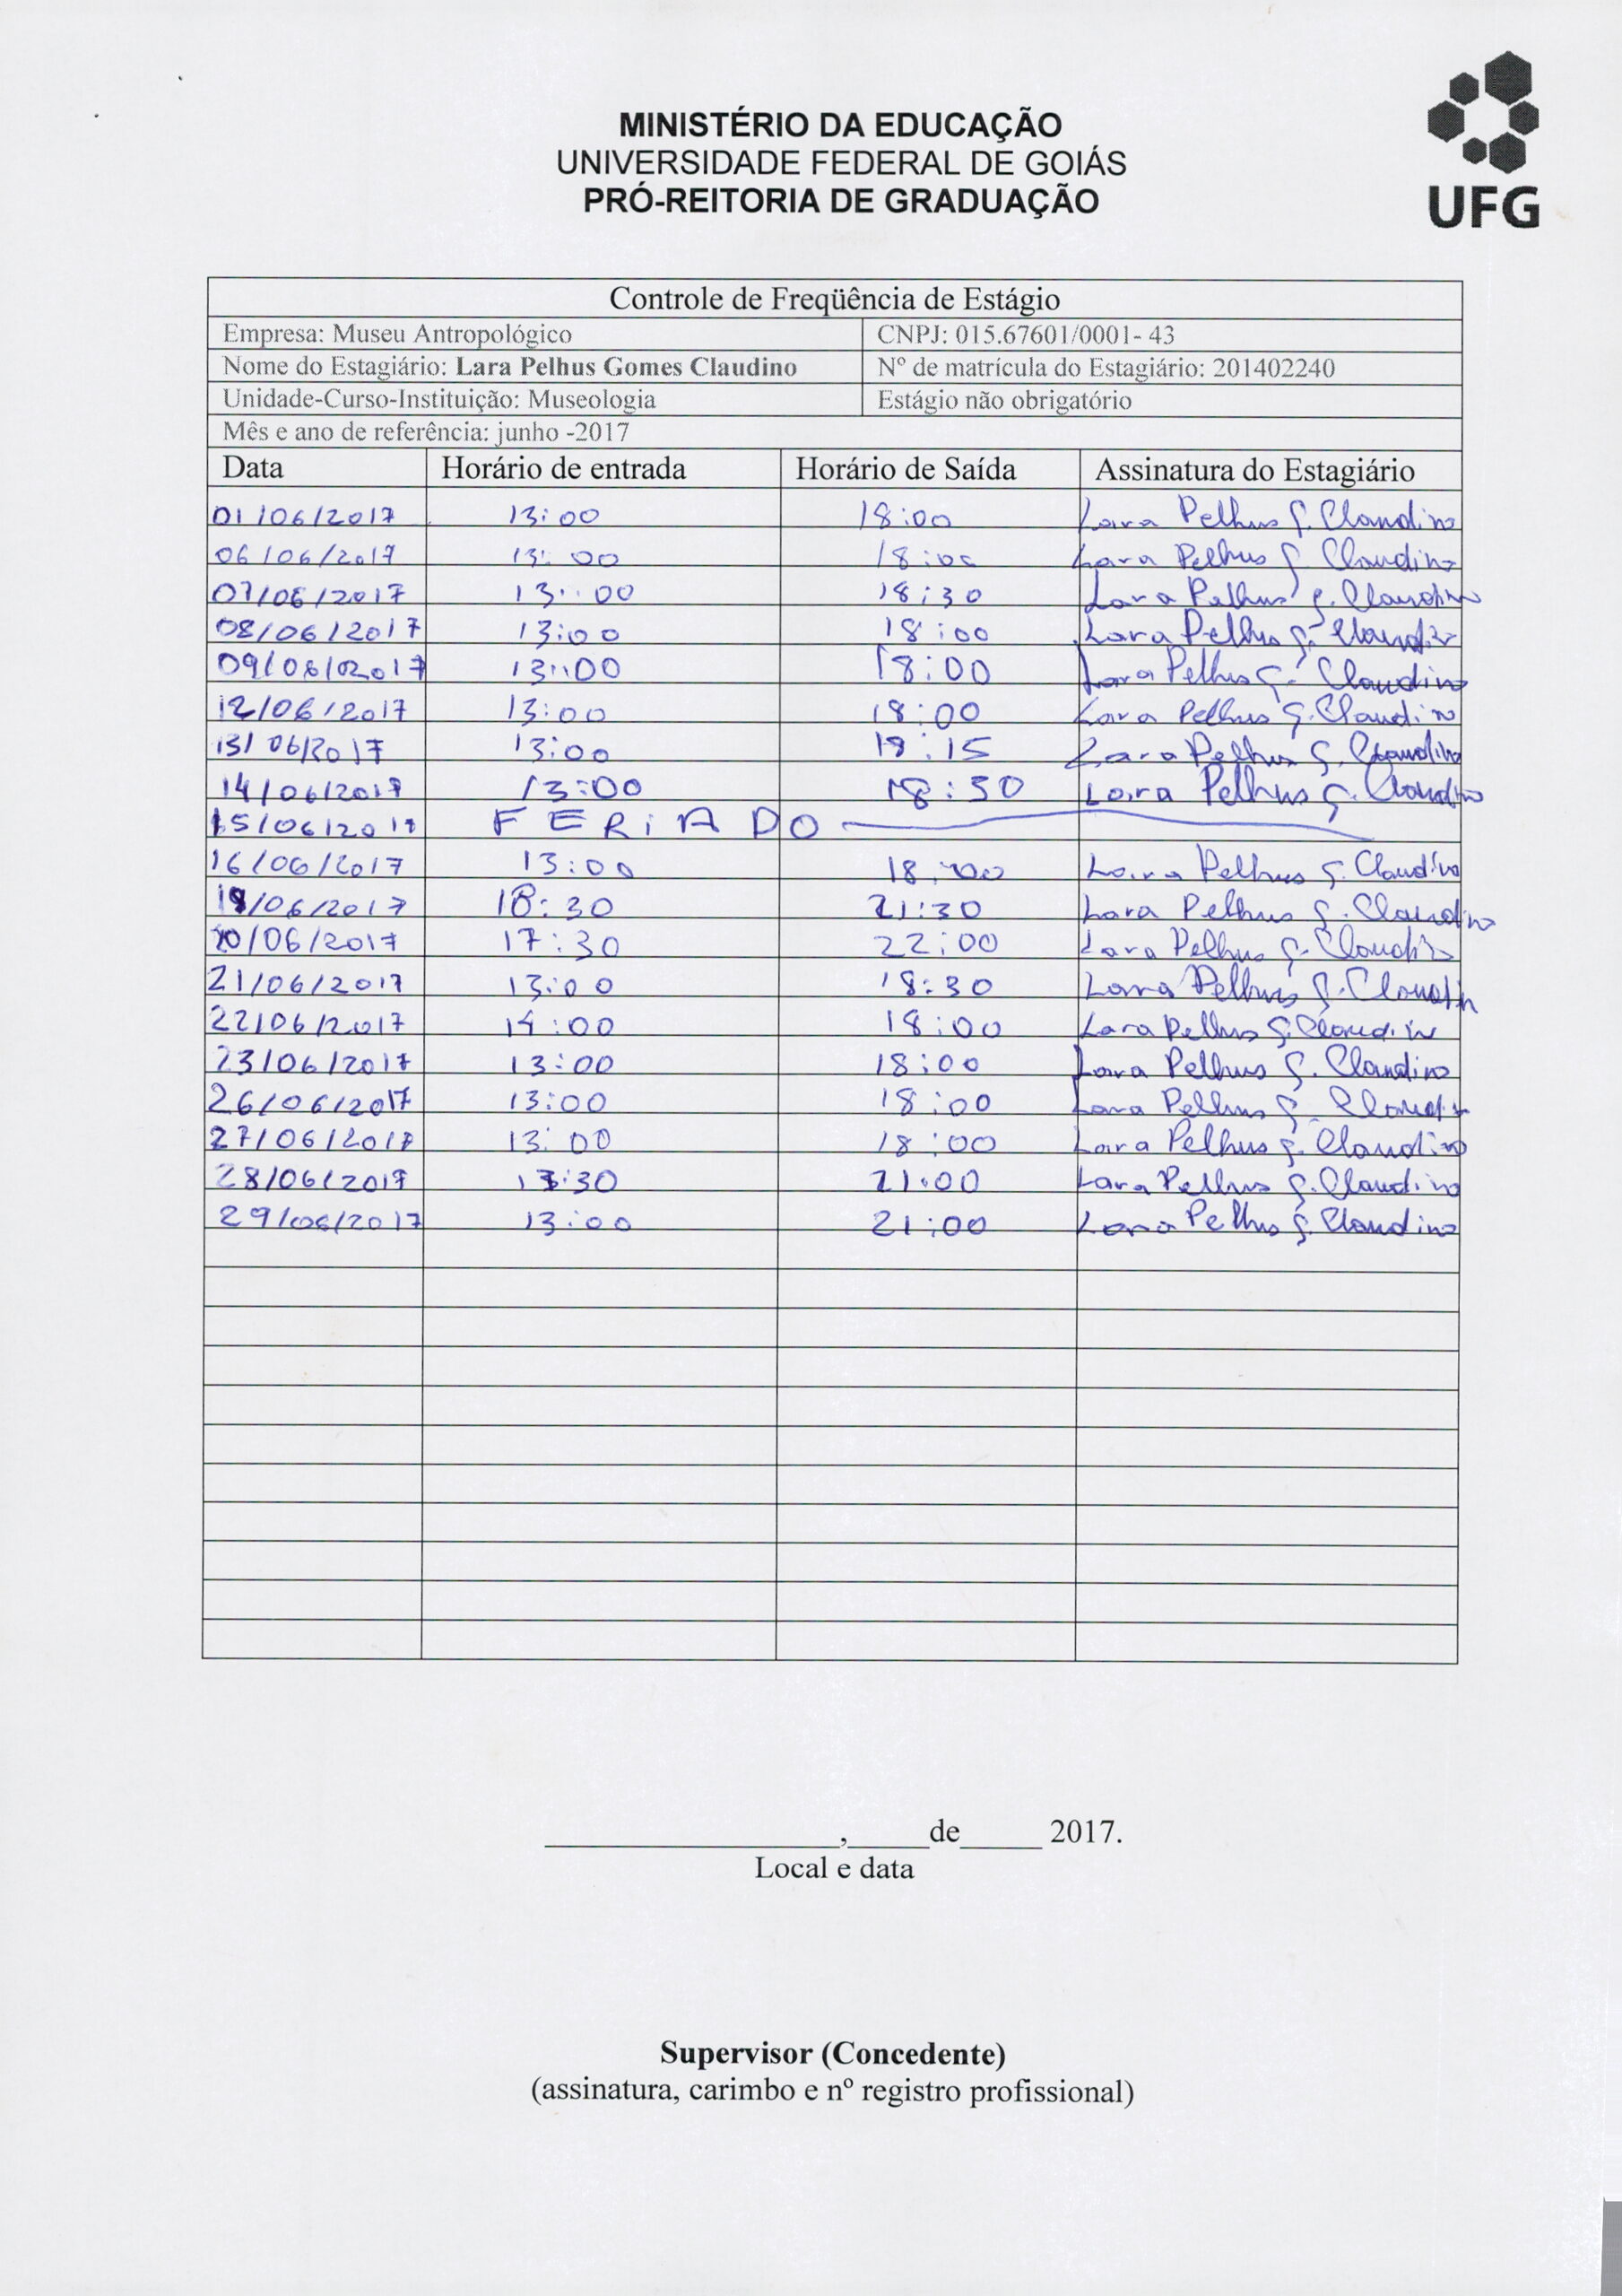 MINISTÉRIO DA EDUCAÇÃO
UNIVERSIDADE FEDERAL DE GOIÁS
PRÓ-REITORIA DE GRADUAÇÃO
UFG
Controle de Freqüência de Estágio
Empresa: Museu Antropológico CNPJ: 015.67601/0001- 43
Nome do Estagiário: Lara Pelhus Gomes Claudino Nº de matrícula do Estagiário: 201402240
Unidade-Curso-Instituição: Museologia Estágio não obrigatório
Mês e ano de referência: junho -2017
Data Horário de entrada Horário de Saída Assinatura do Estagiário
01/06/2017 13:00 18:00 Lara Pelhus G. Claudino
06/06/2017 13:00 18:00 Lara Pelhus G. Claudino
07/06/2017 13:00 18:30 Lara Pelhus G. Claudino
08/06/2017 13:00 18:00 Lara Pelhus G. Claudino
09/06/2017 13:00 18:00 Lara Pelhus G. Claudino
12/06/2017 13:00 18:00 Lara Pelhus G. Claudino
13/06/2017 13:00 18:15 Lara Pelhus G. Claudino
14/06/2017 13:00 18:30 Lara Pelhus G. Claudino
15/06/2017 FERiADO
16/06/2017 13:00 18:00 Lara Pelhus G. Claudino
19/06/2017 18:30 21:30 Lara Pelhus G. Claudino
20/06/2017 17:30 22:00 Lara Pelhus G. Claudino
21/06/2017 13:00 18:30 Lara Pelhus G. Claudino
22/06/2017 14:00 18:00 Lara Pelhus G. Claudino
23/06/2017 13:00 18:00 Lara Pelhus G. Claudino
26/06/2017 13:00 18:00 Lara Pelhus G. Claudino
27/06/2017 13:00 18:00 Lara Pelhus G. Claudino
28/06/2017 21:00 Lara Pelhus G. Claudino
29/06/2017 13:00 21:00 Lara Pelhus G. Claudino
____________________,_____de_____ 2017.
Local e data
Supervisor (Concedente)
(assinatura, carimbo e nº registro profissional)